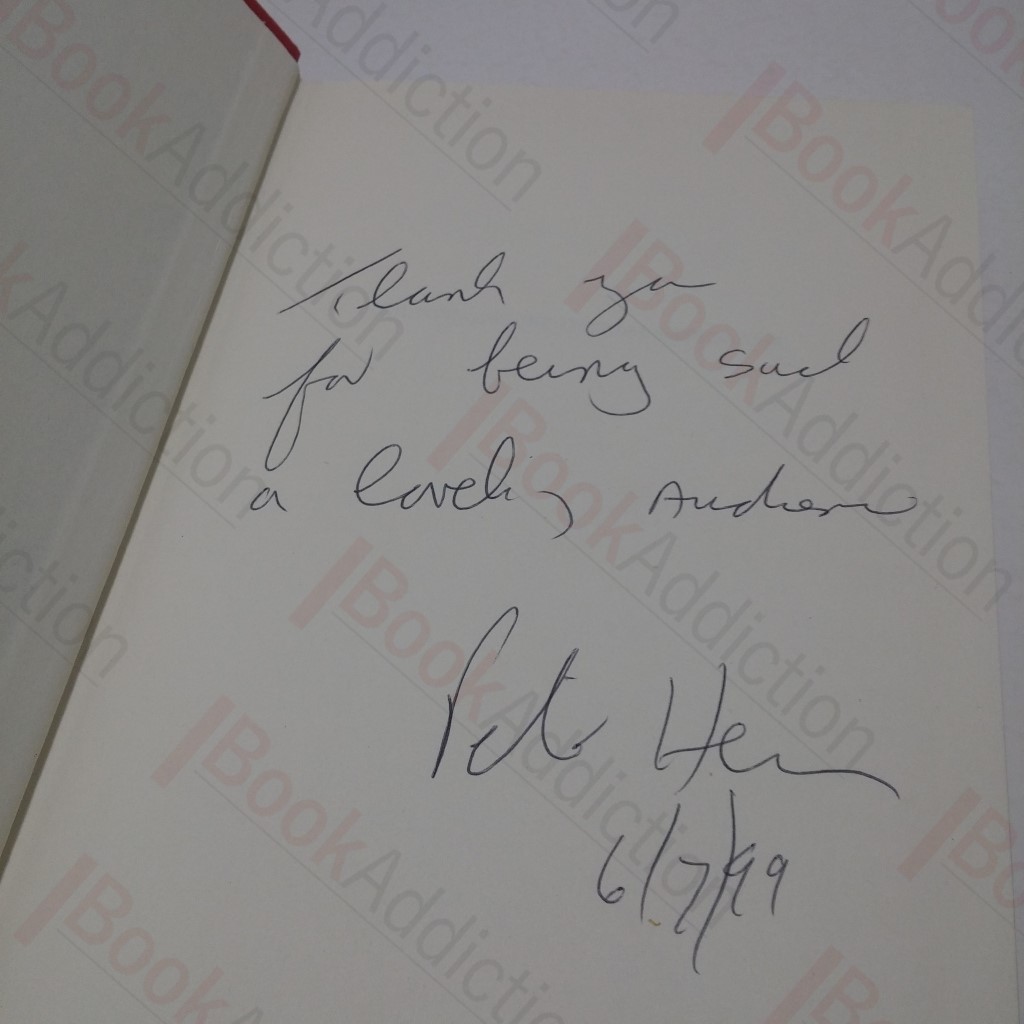 Thank you
for being such
a lovely Audience
Peter
6/7/99
BookAddiction